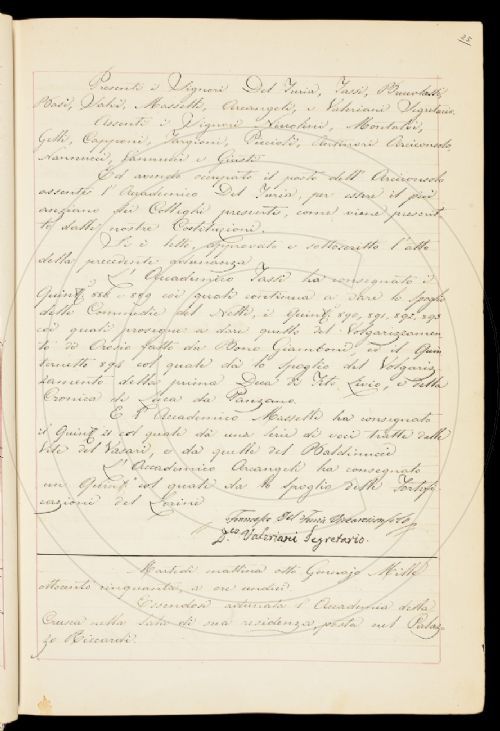 25
Presenti i Signori Del Furia, Tassi, Brucalassi,
Basi, Salvi, Masselli, Arcangeli, e Valeriani Segretario.
Assenti i Signori Nicchini, Montalvi,
Gelli, Capponi, Targioni, Puccioli, Antinori Arciconsolo,
Nannucci, Vannucci e Giusti.
Ed avendo occupato il posto dell'Arciconsolo
assente l'Accademico Del Furia, per essere il più
anziano dei Colleghi presenti, come viene prescrit-
to dalle nostre Costituzioni.
Si è letto, approvato e sottoscritto l'atto
della precedente adunanza.
L'Accademico Tassi ha consegnato i
Quint. 888 e 889 coi quali continua a dare lo spoglio
delle Commedie del Nelli, i Quint. 890, 891, 892, 893
coi quali prosegue a dare quello del Volgarizzamen-
to di Orosio fatto da Bono Giamboni, ed il Quin-
ternetto 894 col quale dà lo spoglio del Volgariz-
zamento della prima Deca di Tito Livio, e della
Cronica di Luca da Panzano.
E l'Accademico Masselli ha consegnato
il Quint. 21 col quale dà una serie di voci tratte dalle
Vite del Vasari, e da quelle del Baldinucci
L'Accademico Arcangeli ha consegnato
un Quint. col quale dà lo spoglio delle Fortifi-
cazioni del Lorini
Francesco Del Furia
D.co Valeriani Segretario.
Martedì mattina otto Gennajo Mille
ottocento cinquanta, a ore undici.
Essendosi adunata l'Accademia della
Crusca nella Sala di sua residenza posta nel Palaz-
zo Riccardi.